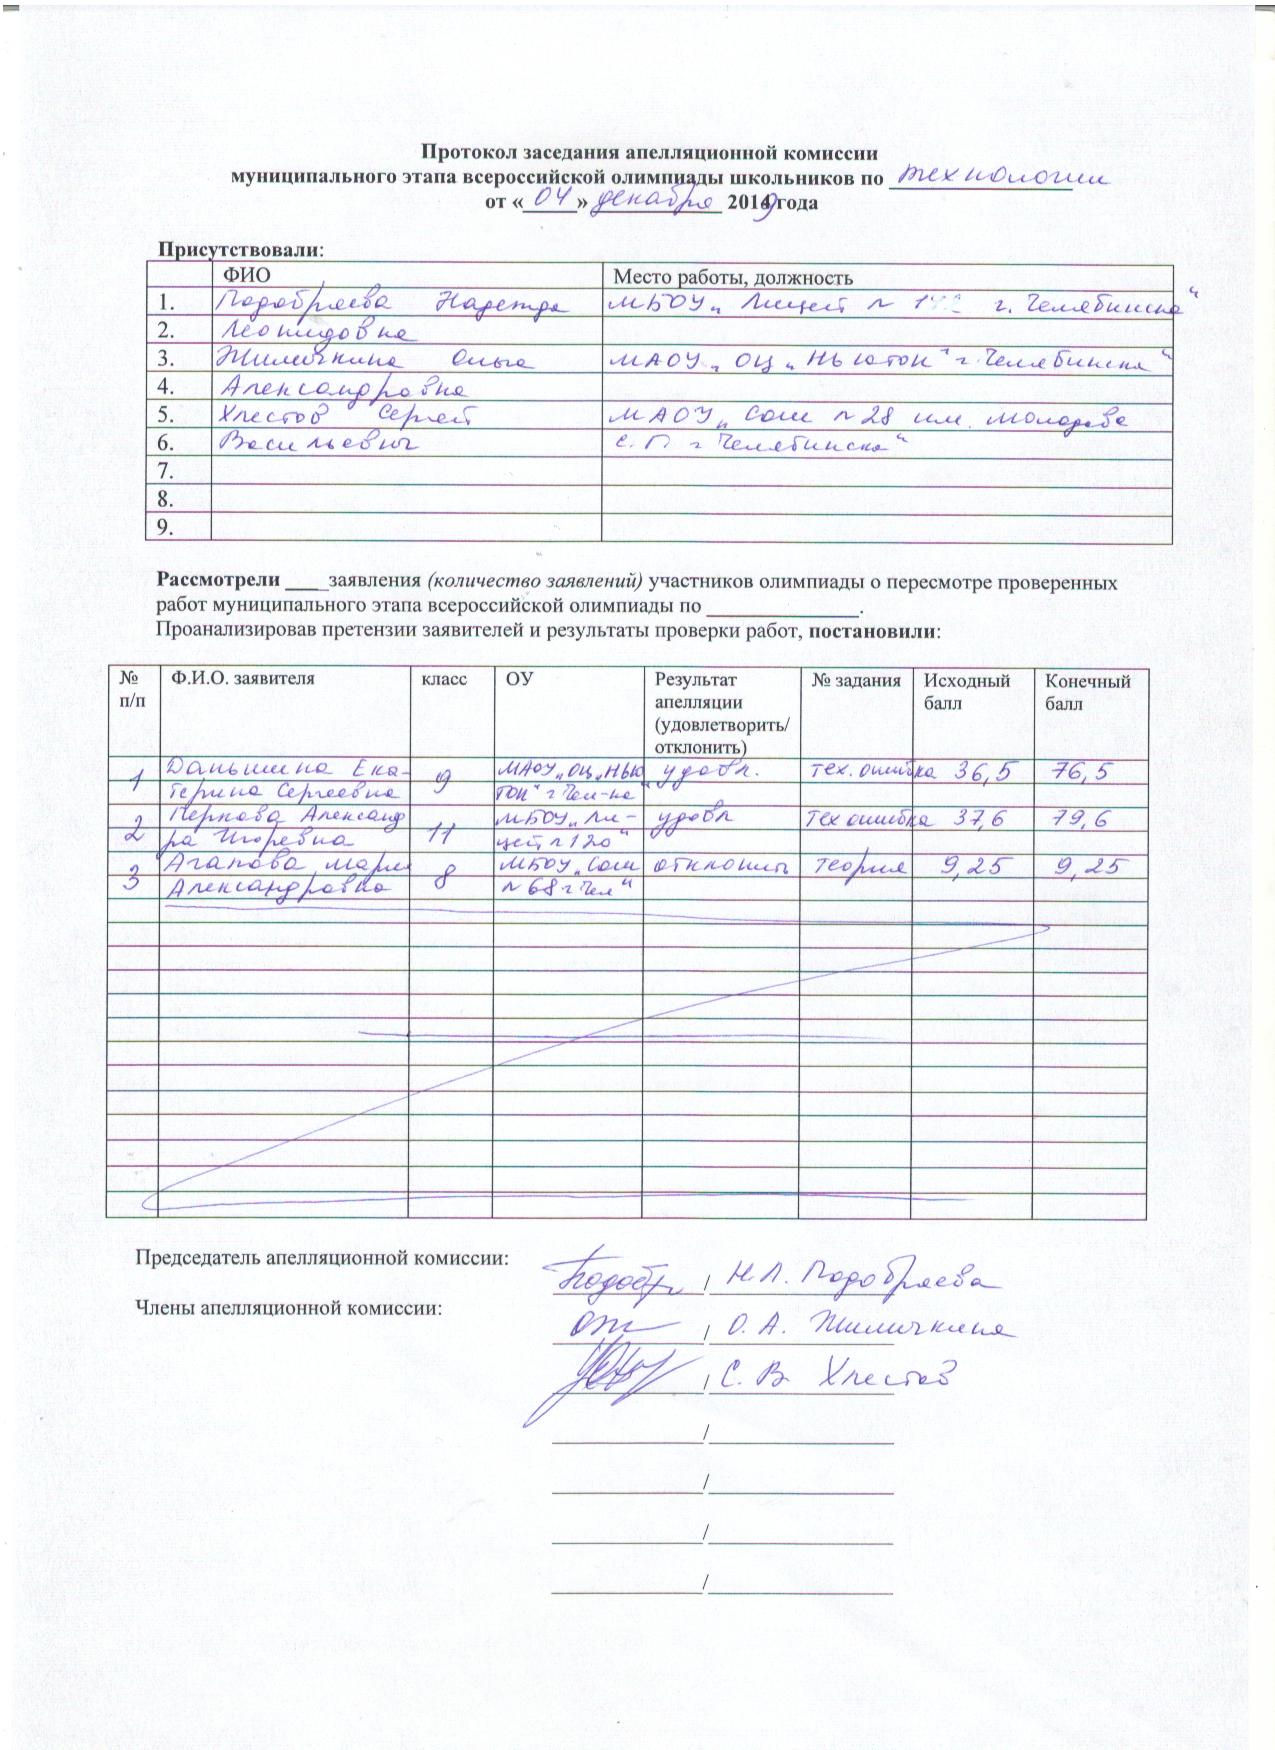 Протокол заседания апелляционной комиссии
муниципального этапа всероссийской олимпиады школьников по технологии
от « 04 » декабря 2019 года
Присутствовали:
ФИО Место работы, должность
1. Подобряева Надежда МБОУ „Лицей № г. Челябинска“
2. Леонидовна
3. Жиличкина Ольга МАОУ „ОЦ „Ньютон“ г. Челябинска“
4. Александровна
5. Хлестов Сергей МАОУ „СОШ № 28 им. Молодова
6. Васильевич С.П. г Челябинска“
7.
8.
9.
Рассмотрели ____заявления (количество заявлений) участников олимпиады о пересмотре проверенных
работ муниципального этапа всероссийской олимпиады по ______________.
Проанализировав претензии заявителей и результаты проверки работ, постановили:
№ п/п Ф.И.О. заявителя класс ОУ Результат апелляции (удовлетворить/ отклонить) № задания Исходный балл Конечный балл
1 Даньшина Ека- 9 МАОУ „ОЦ „Нью удовл. тех. ошибка 36,5 76,5
терина Сергеевна тон“ г Чел-ка“
2 Пернова Александ 11 МБОУ „Ли- удовл тех ошибка 37,6 79,6
ра Игоревна цей № 120“
3 Агапова Мария 8 МБОУ „СОШ отклонить теория 9,25 9,25
Александровна № 68 г Чел“
Председатель апелляционной комиссии: Подобр / Н.Л. Подобряева
Члены апелляционной комиссии:
/ О.А. Жиличкина
/ С.В. Хлестов
/
/
/
/